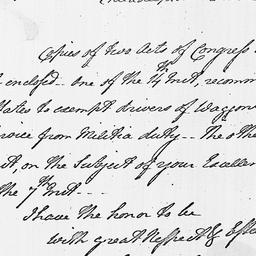 Copies of two Acts of Congress
enclosed -- one of the 14th Inst, recomm
States to exempt drivers of Waggons
from Militia duty -- The othe
on the Subject of your Excellen
the 7th Inst ---
I have the honor to be
with great Respect & Este